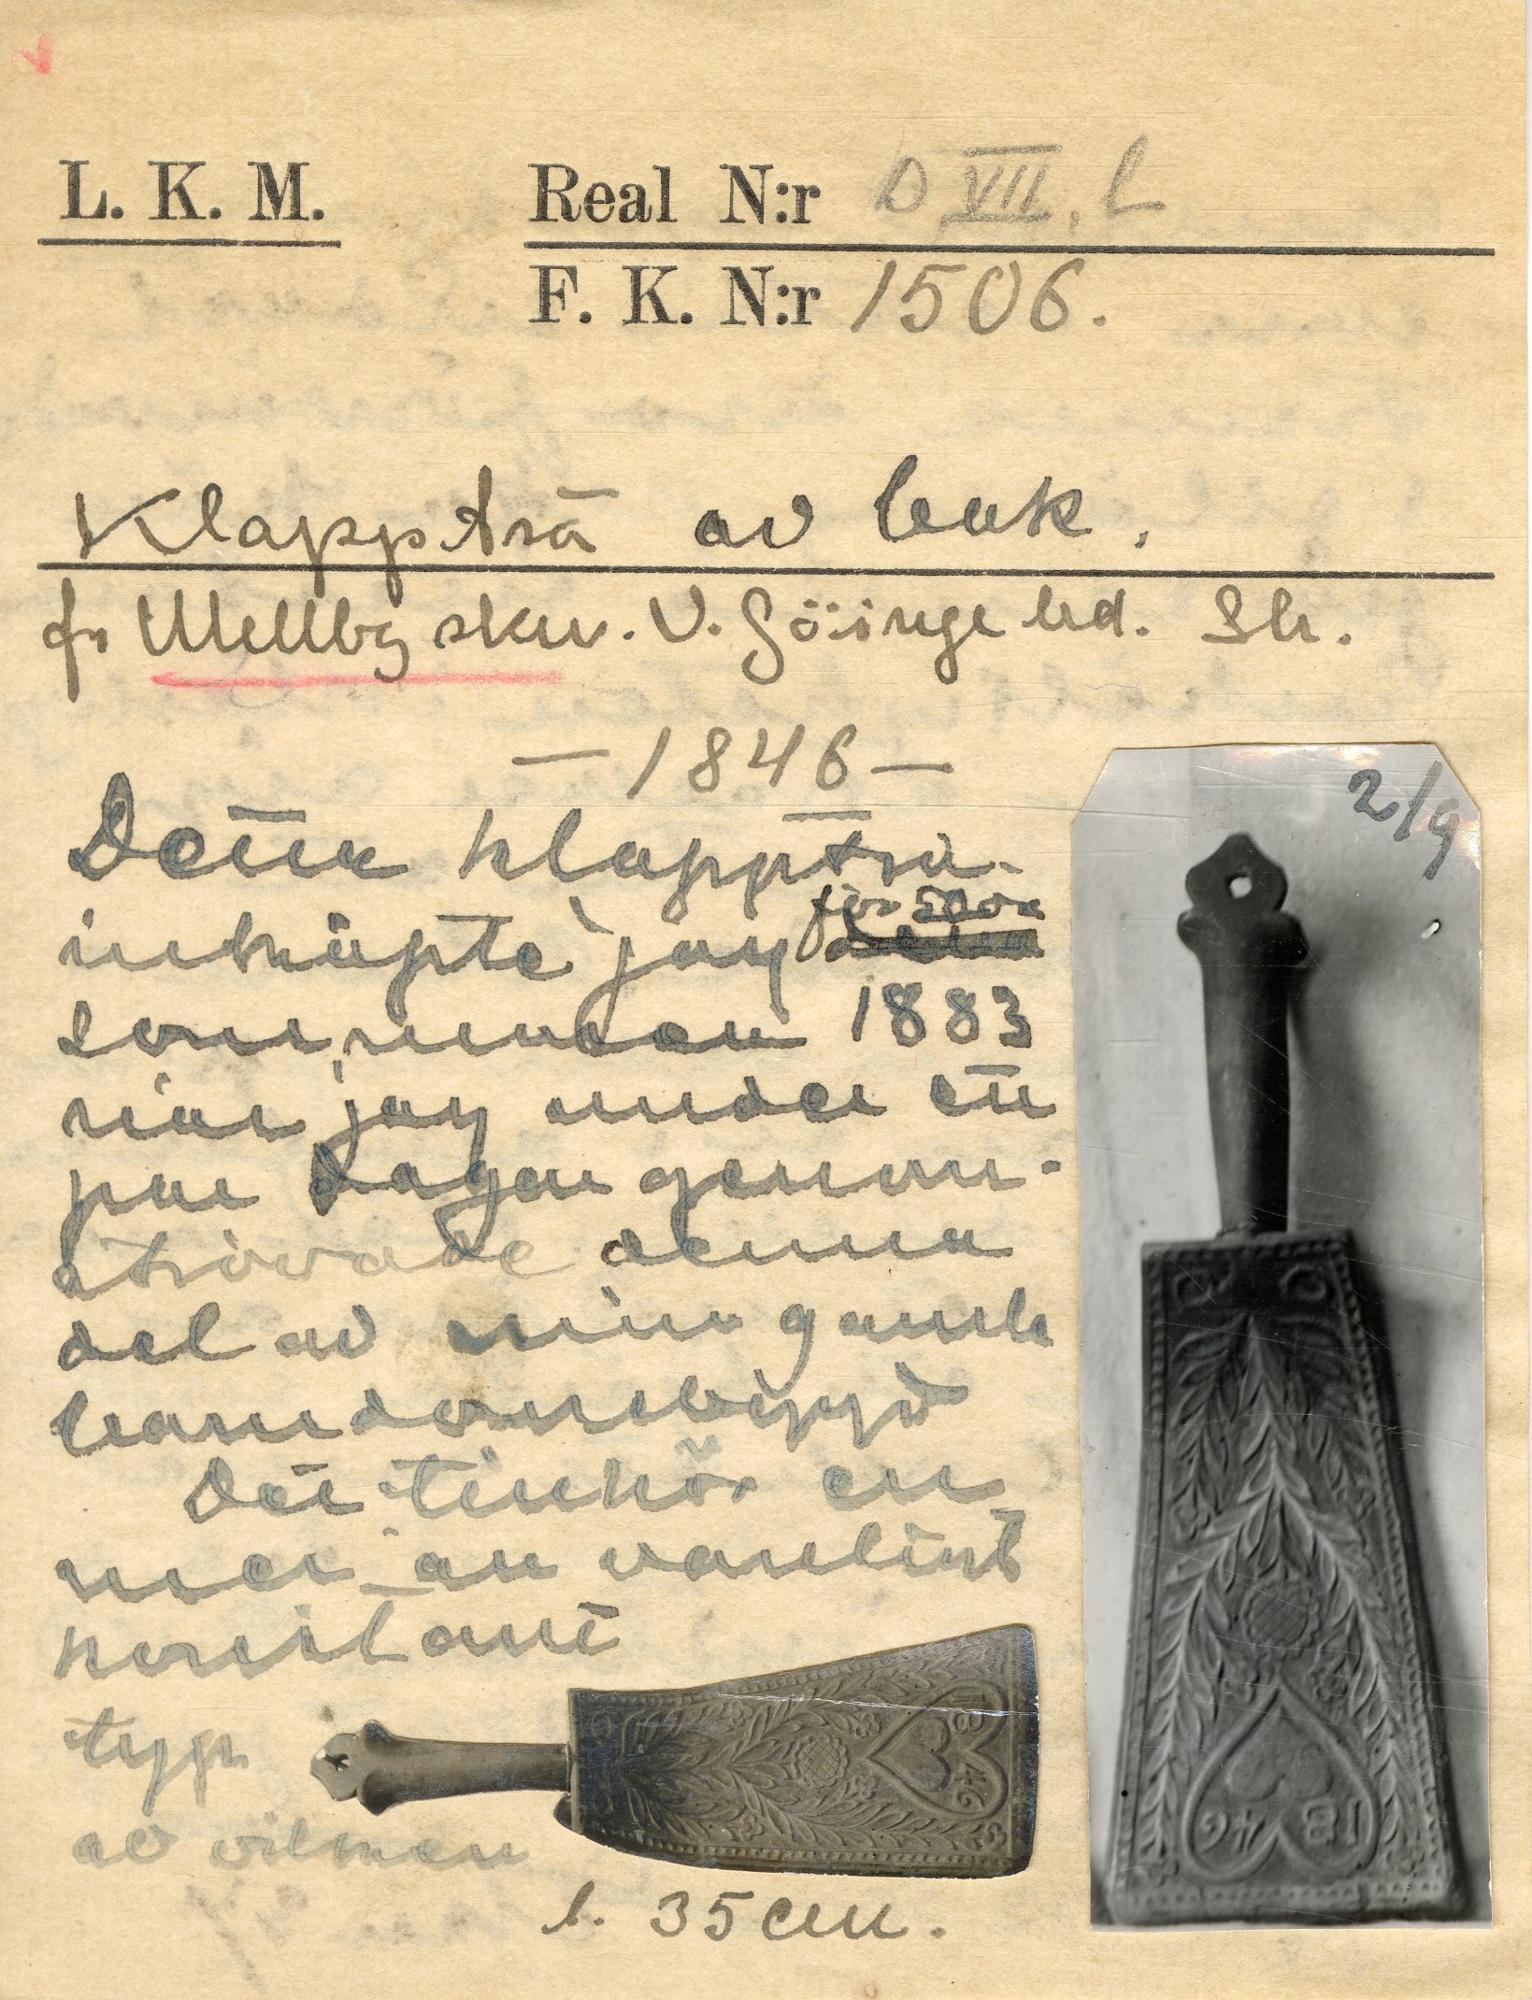 L. K. M.
Real N:r D VII. l
F. K. N:r 1506.
Klappträ av bok.
fr Mellby skn. V. Göinge hd. Sk.
— 1846 —
2/9
Detta klappträ-
inköpte jag för 50 öre
sommaren 1883
när jag under ett
par dagar genom-
strövade denna
del av min gamla
barndomsbygd
Det tillhör en
mer än vanligt
konstant
typ
av vilken
l. 35 cm.
1846
1846